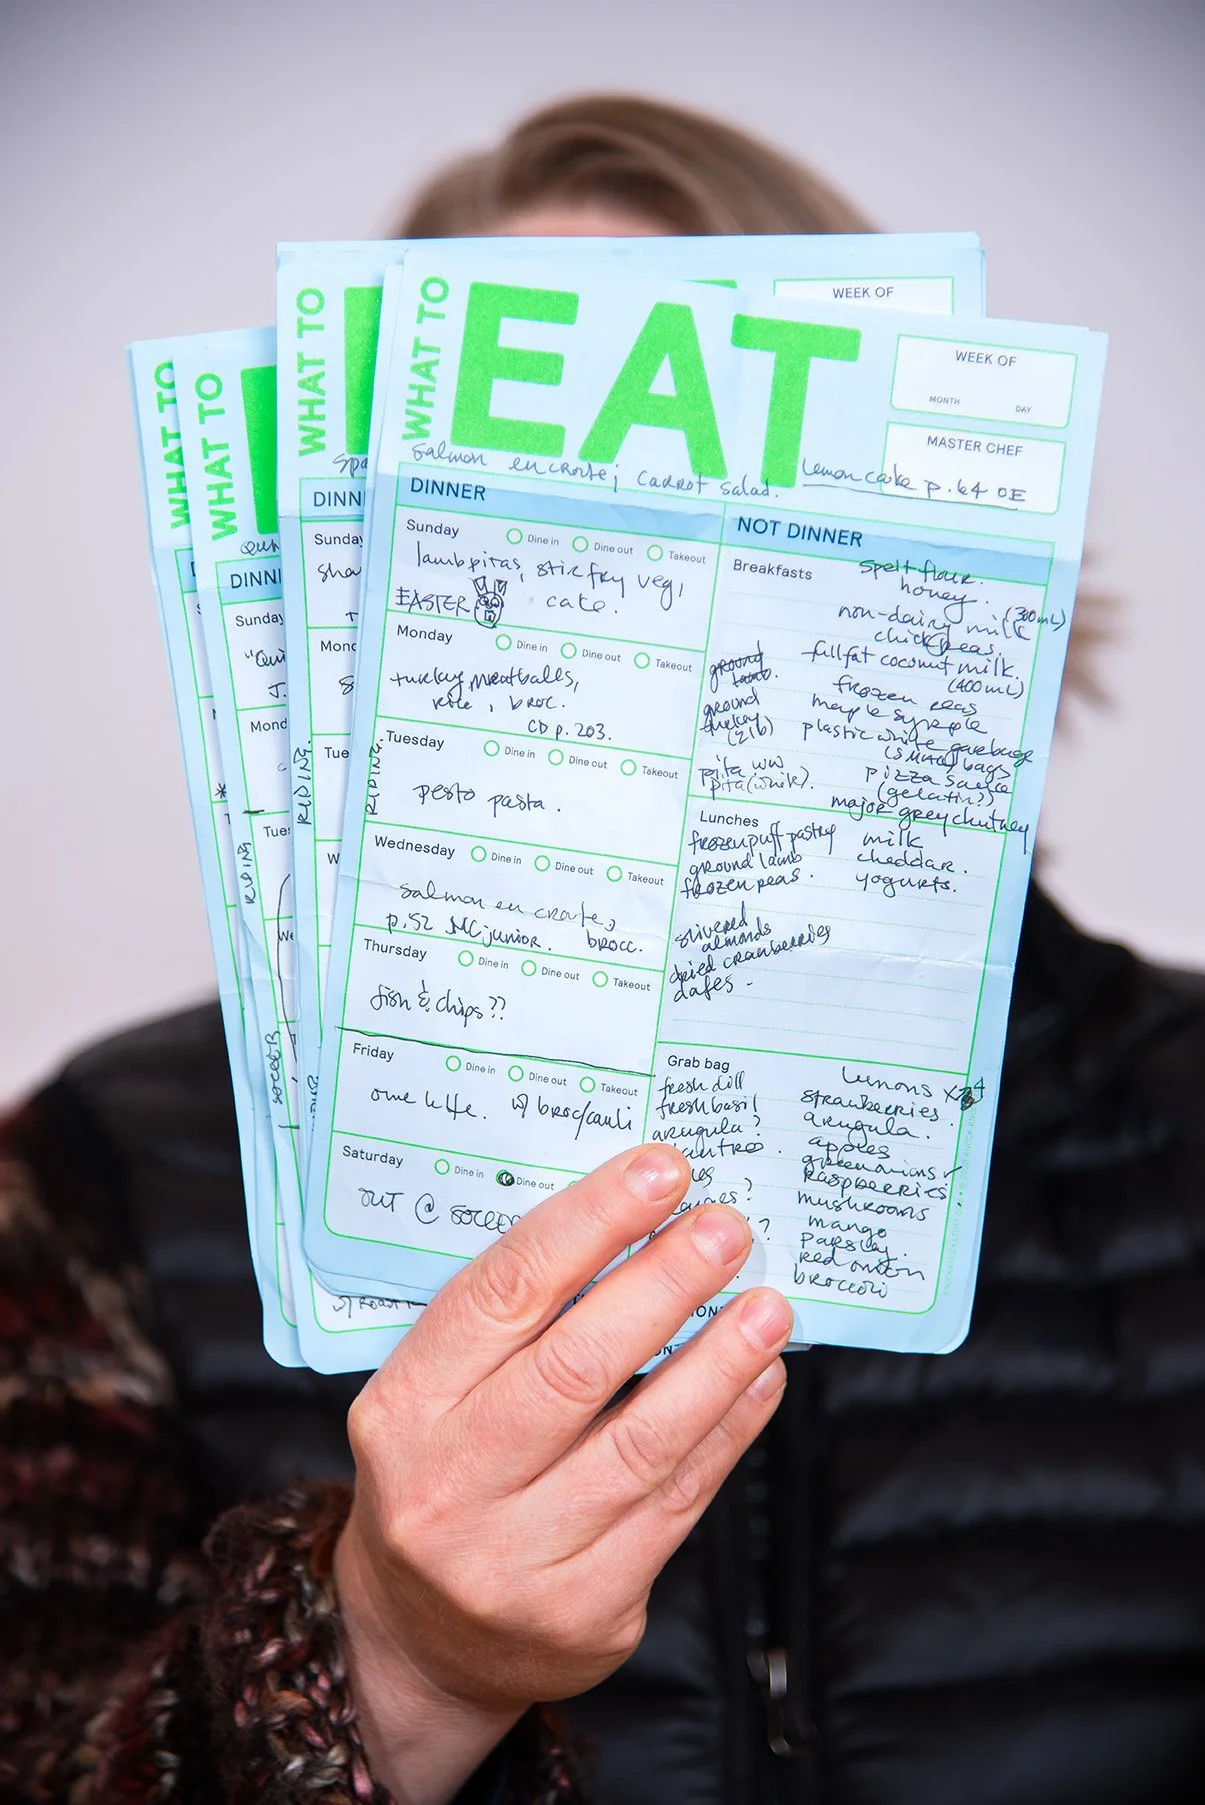 WHAT TO
WHAT TO
WHAT TO
WHAT TO
EAT
WEEK OF
WEEK OF
MONTH DAY
MASTER CHEF
salmon en croute; carrot salad.
Lemon cake p. 64 OE
DINNER
Sunday
Dine in Dine out Takeout
lamb pitas, stir fry veg,
EASTER cake.
Monday
Dine in Dine out Takeout
turkey meatballs,
rice, broc.
CD p. 203.
RIDING.
Tuesday
Dine in Dine out Takeout
pesto pasta.
Wednesday
Dine in Dine out Takeout
salmon en croute,
p. 52 MC junior. brocc.
Thursday
Dine in Dine out Takeout
fish & chips??
Friday
Dine in Dine out Takeout
w/ broc/cauli
Saturday
Dine in Dine out
OUT @ SOCCER
NOT DINNER
Breakfasts
spelt flour.
honey.
non-dairy milk (300mL)
chickpeas.
fullfat coconut milk.
(400mL)
ground lamb.
frozen peas
ground turkey (2lb)
maple syrup
plastic white garbage
(small) bags
pita ww
pita (white).
pizza sauce
(gelatin??)
major grey chutney
Lunches
frozen puff pastry milk
ground lamb cheddar.
frozen peas. yogurts.
slivered
almonds
dried cranberries
dates -
Grab bag
lemons x 4
fresh dill strawberries.
fresh basil arugula.
arugula? apples
green onions
raspberries
mushrooms
mango
parsley.
red onion
broccoli
DINN
Sunday
Mond
Tue
RIDING.
DINNI
Sunday
"Qui
J.
Mond
Tues
RIDING
We
SOCCER